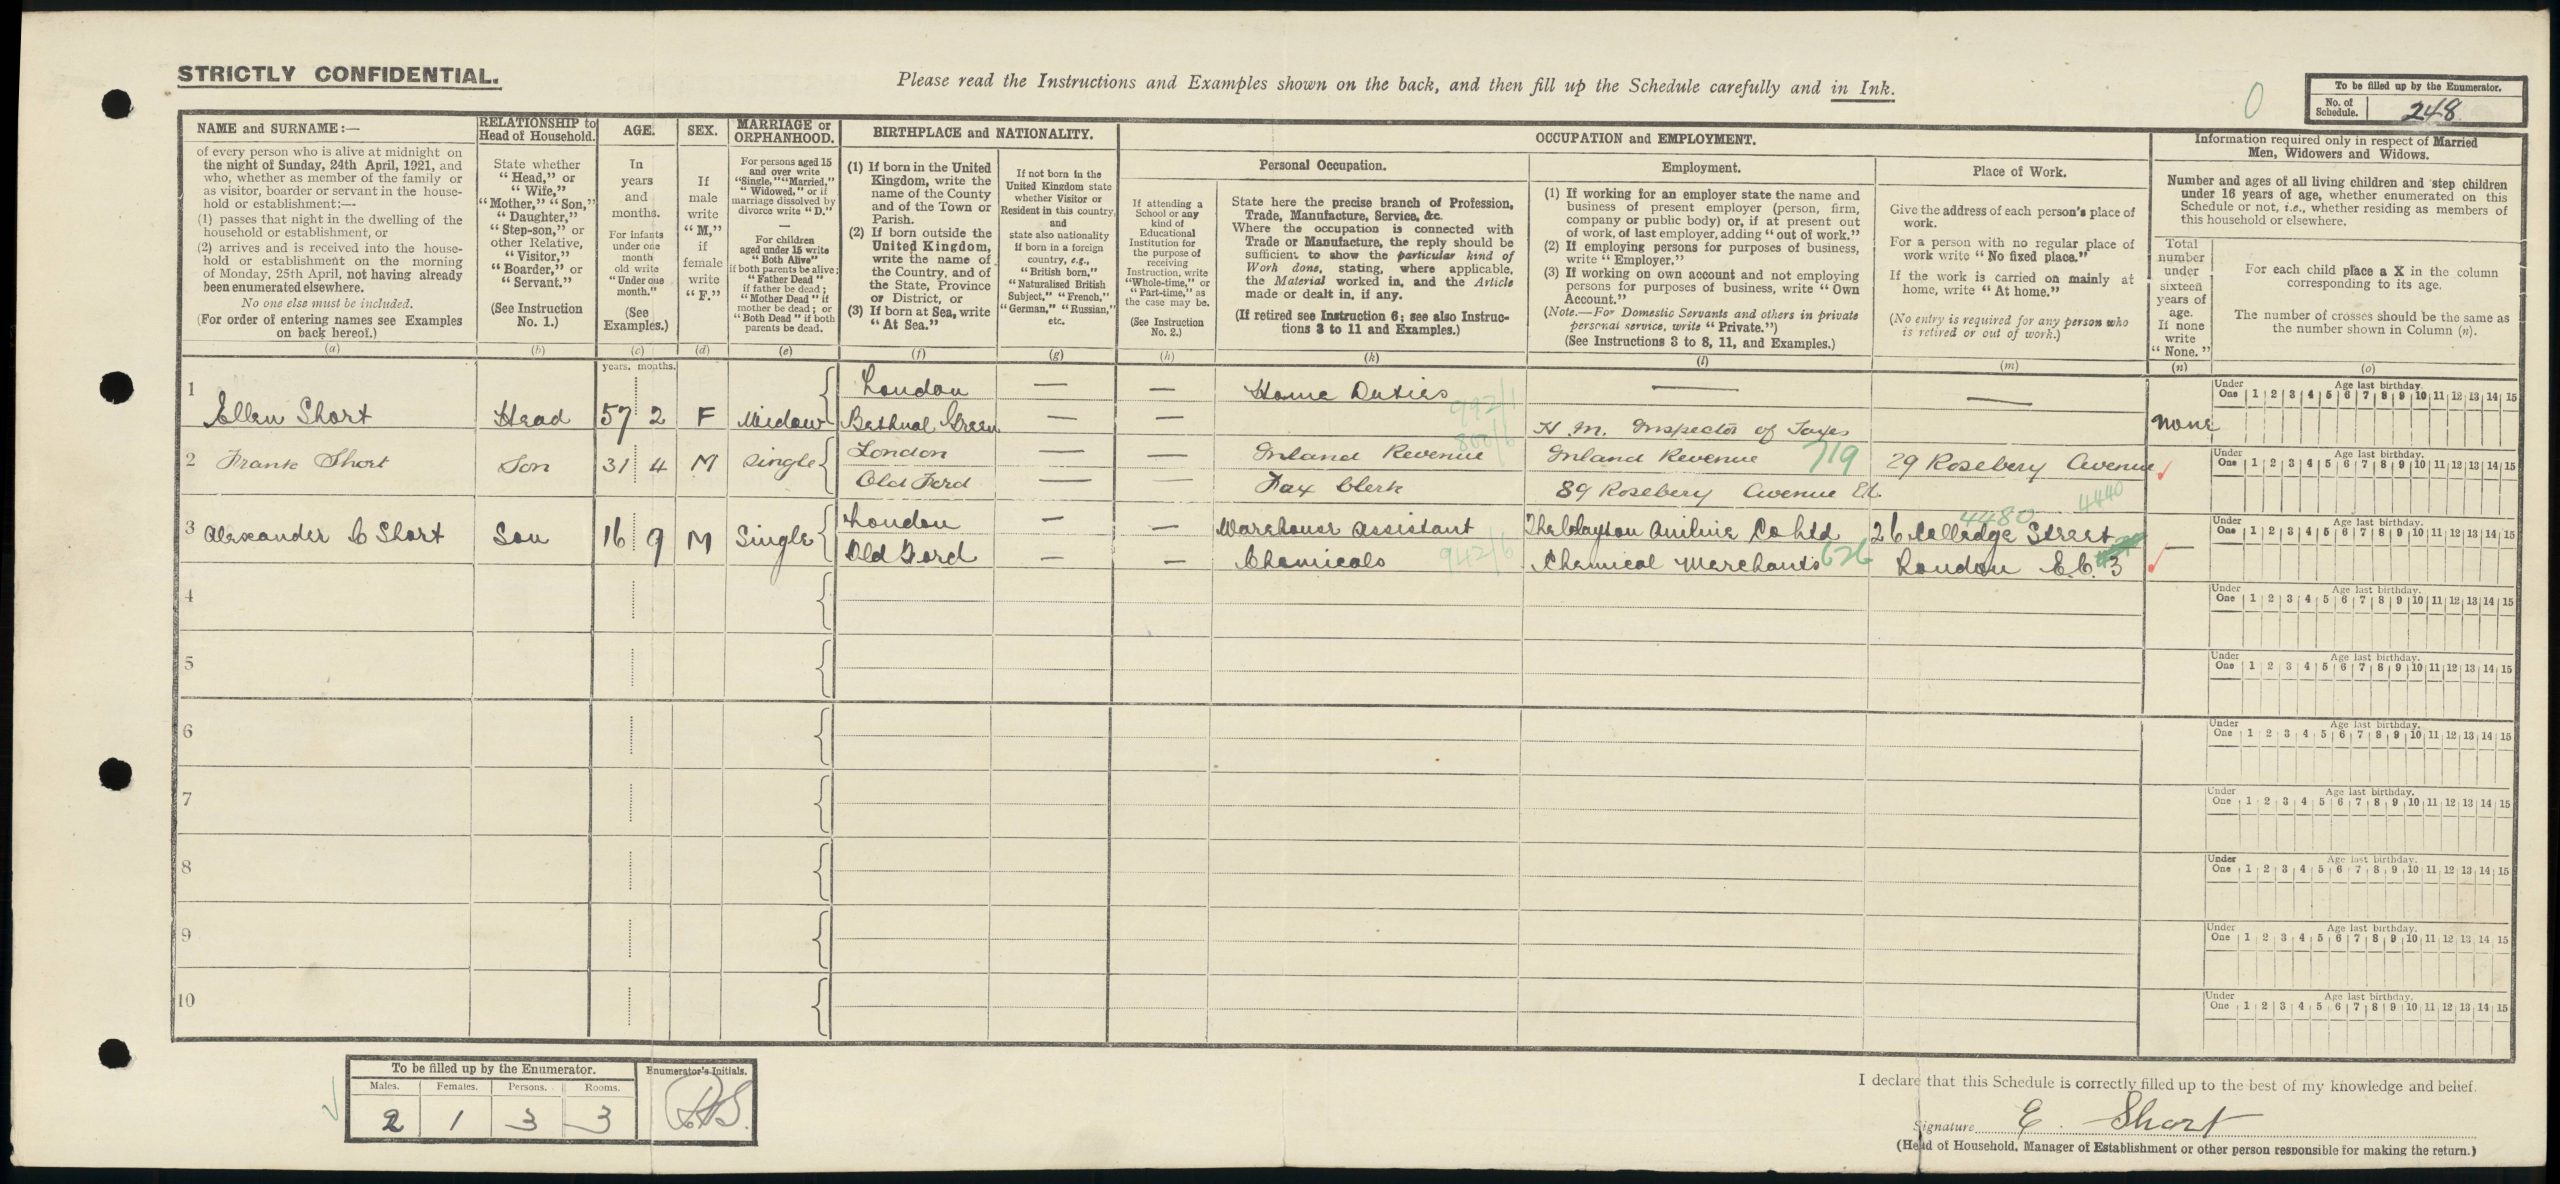 STRICTLY CONFIDENTIAL.
Please read the Instructions and Examples shown on the back, and then fill up the Schedule carefully and in Ink.
0
To be filled up by the Enumerator.
No. of Schedule. 248
NAME and SURNAME:—
of every person who is alive at midnight on
the night of Sunday, 24th April, 1921, and
who, whether as member of the family or
as visitor, boarder or servant in the house-
hold or establishment:—
(1) passes that night in the dwelling of the
household or establishment, or
(2) arrives and is received into the house-
hold or establishment on the morning
of Monday, 25th April, not having already
been enumerated elsewhere.
No one else must be included.
(For order of entering names see Examples
on back hereof.)
(a)
RELATIONSHIP to
Head of Household.
State whether
"Head," or
"Wife,"
"Mother," "Son,"
"Daughter,"
"Step-son," or
other Relative,
"Visitor,"
"Boarder," or
"Servant."
(See Instruction
No. 1.)
(b)
AGE.
In
years
and
months.
For infants
under one
month
old write
"Under one
month."
(See
Examples.)
(c)
SEX.
If
male
write
"M,"
if
female
write
"F."
(d)
MARRIAGE or
ORPHANHOOD.
For persons aged 15
and over write
"Single," "Married,"
"Widowed," or if
marriage dissolved by
divorce write "D."
—
For children
aged under 15 write
"Both Alive"
if both parents be alive;
"Father Dead"
if father be dead;
"Mother Dead" if
mother be dead; or
"Both Dead" if both
parents be dead.
(e)
BIRTHPLACE and NATIONALITY.
(1) If born in the United
Kingdom, write the
name of the County
and of the Town or
Parish.
(2) If born outside the
United Kingdom,
write the name of
the Country, and of
the State, Province
or District, or
(3) If born at Sea, write
"At Sea."
(f)
If not born in the
United Kingdom state
whether Visitor or
Resident in this country,
and
state also nationality
if born in a foreign
country, e.g.,
"British born,"
"Naturalised British
Subject," "French,"
"German," "Russian,"
etc.
(g)
OCCUPATION and EMPLOYMENT.
If attending a
School or any
kind of
Educational
Institution for
the purpose of
receiving
Instruction, write
"Whole-time," or
"Part-time," as
the case may be.
(See Instruction
No. 2.)
(h)
Personal Occupation.
State here the precise branch of Profession,
Trade, Manufacture, Service, &c.
Where the occupation is connected with
Trade or Manufacture, the reply should be
sufficient to show the particular kind of
Work done, stating, where applicable,
the Material worked in, and the Article
made or dealt in, if any.
(If retired see Instruction 6; see also Instruc-
tions 3 to 11 and Examples.)
(k)
Employment.
(1) If working for an employer state the name and
business of present employer (person, firm,
company or public body) or, if at present out
of work, of last employer, adding "out of work."
(2) If employing persons for purposes of business,
write "Employer."
(3) If working on own account and not employing
persons for purposes of business, write "Own
Account."
(Note.—For Domestic Servants and others in private
personal service, write "Private.")
(See Instructions 3 to 8, 11, and Examples.)
(l)
Place of Work.
Give the address of each person's place of
work.
For a person with no regular place of
work write "No fixed place."
If the work is carried on mainly at
home, write "At home."
(No entry is required for any person who
is retired or out of work.)
(m)
Information required only in respect of Married
Men, Widowers and Widows.
Number and ages of all living children and step children
under 16 years of age, whether enumerated on this
Schedule or not, i.e., whether residing as members of
this household or elsewhere.
Total
number
under
sixteen
years of
age.
If none
write
"None."
(n)
For each child place a X in the column
corresponding to its age.
The number of crosses should be the same as
the number shown in Column (n).
(o)
years. months.
1 London — — Home Duties — —
Ellen Short Head 57 2 F Widow Bethnal Green — — 992/1 none
Under One Age last birthday. 1 2 3 4 5 6 7 8 9 10 11 12 13 14 15
H.M. Inspector of Taxes
2 Frank Short Son 31 4 M Single London — — Inland Revenue 800/6 Inland Revenue 719 29 Rosebery Avenue
Old Ford — — Tax Clerk 89 Rosebery Avenue E.C.
Under One Age last birthday. 1 2 3 4 5 6 7 8 9 10 11 12 13 14 15
4440
3 Alexander C Short Son 16 9 M Single London — — Warehouse Assistant The Clayton Aniline Co Ltd 4480 26 Colledge Street
Old Ford — — Chemicals 942/6 Chemical Merchants 626 London E.C. 3 —
Under One Age last birthday. 1 2 3 4 5 6 7 8 9 10 11 12 13 14 15
4
Under One Age last birthday. 1 2 3 4 5 6 7 8 9 10 11 12 13 14 15
5
Under One Age last birthday. 1 2 3 4 5 6 7 8 9 10 11 12 13 14 15
6
Under One Age last birthday. 1 2 3 4 5 6 7 8 9 10 11 12 13 14 15
7
Under One Age last birthday. 1 2 3 4 5 6 7 8 9 10 11 12 13 14 15
8
Under One Age last birthday. 1 2 3 4 5 6 7 8 9 10 11 12 13 14 15
9
Under One Age last birthday. 1 2 3 4 5 6 7 8 9 10 11 12 13 14 15
10
Under One Age last birthday. 1 2 3 4 5 6 7 8 9 10 11 12 13 14 15
To be filled up by the Enumerator.
Males. Females. Persons. Rooms.
2 1 3 3
Enumerator's Initials.
I declare that this Schedule is correctly filled up to the best of my knowledge and belief.
Signature E. Short
(Head of Household, Manager of Establishment or other person responsible for making the return.)